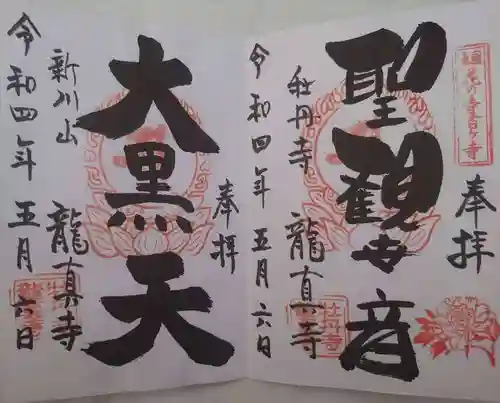 奉拝
聖観世音
牡丹寺 龍真寺
令和四年五月六日
奉拝
大黒天
新川山 龍真寺
令和四年五月六日
牡丹寺